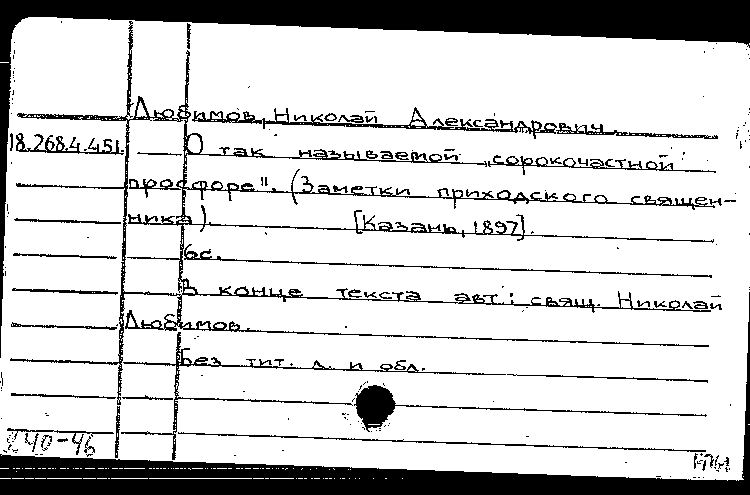 Любимов, Николай Александрович.
18.268.4.451. О так называемой „сорокочастной
просфоре". (Заметки приходского священ-
ника). [Казань, 1897].
6с.
В конце текста авт.: свящ. Николай
Любимов.
Без тит. л. и обл.
240-46